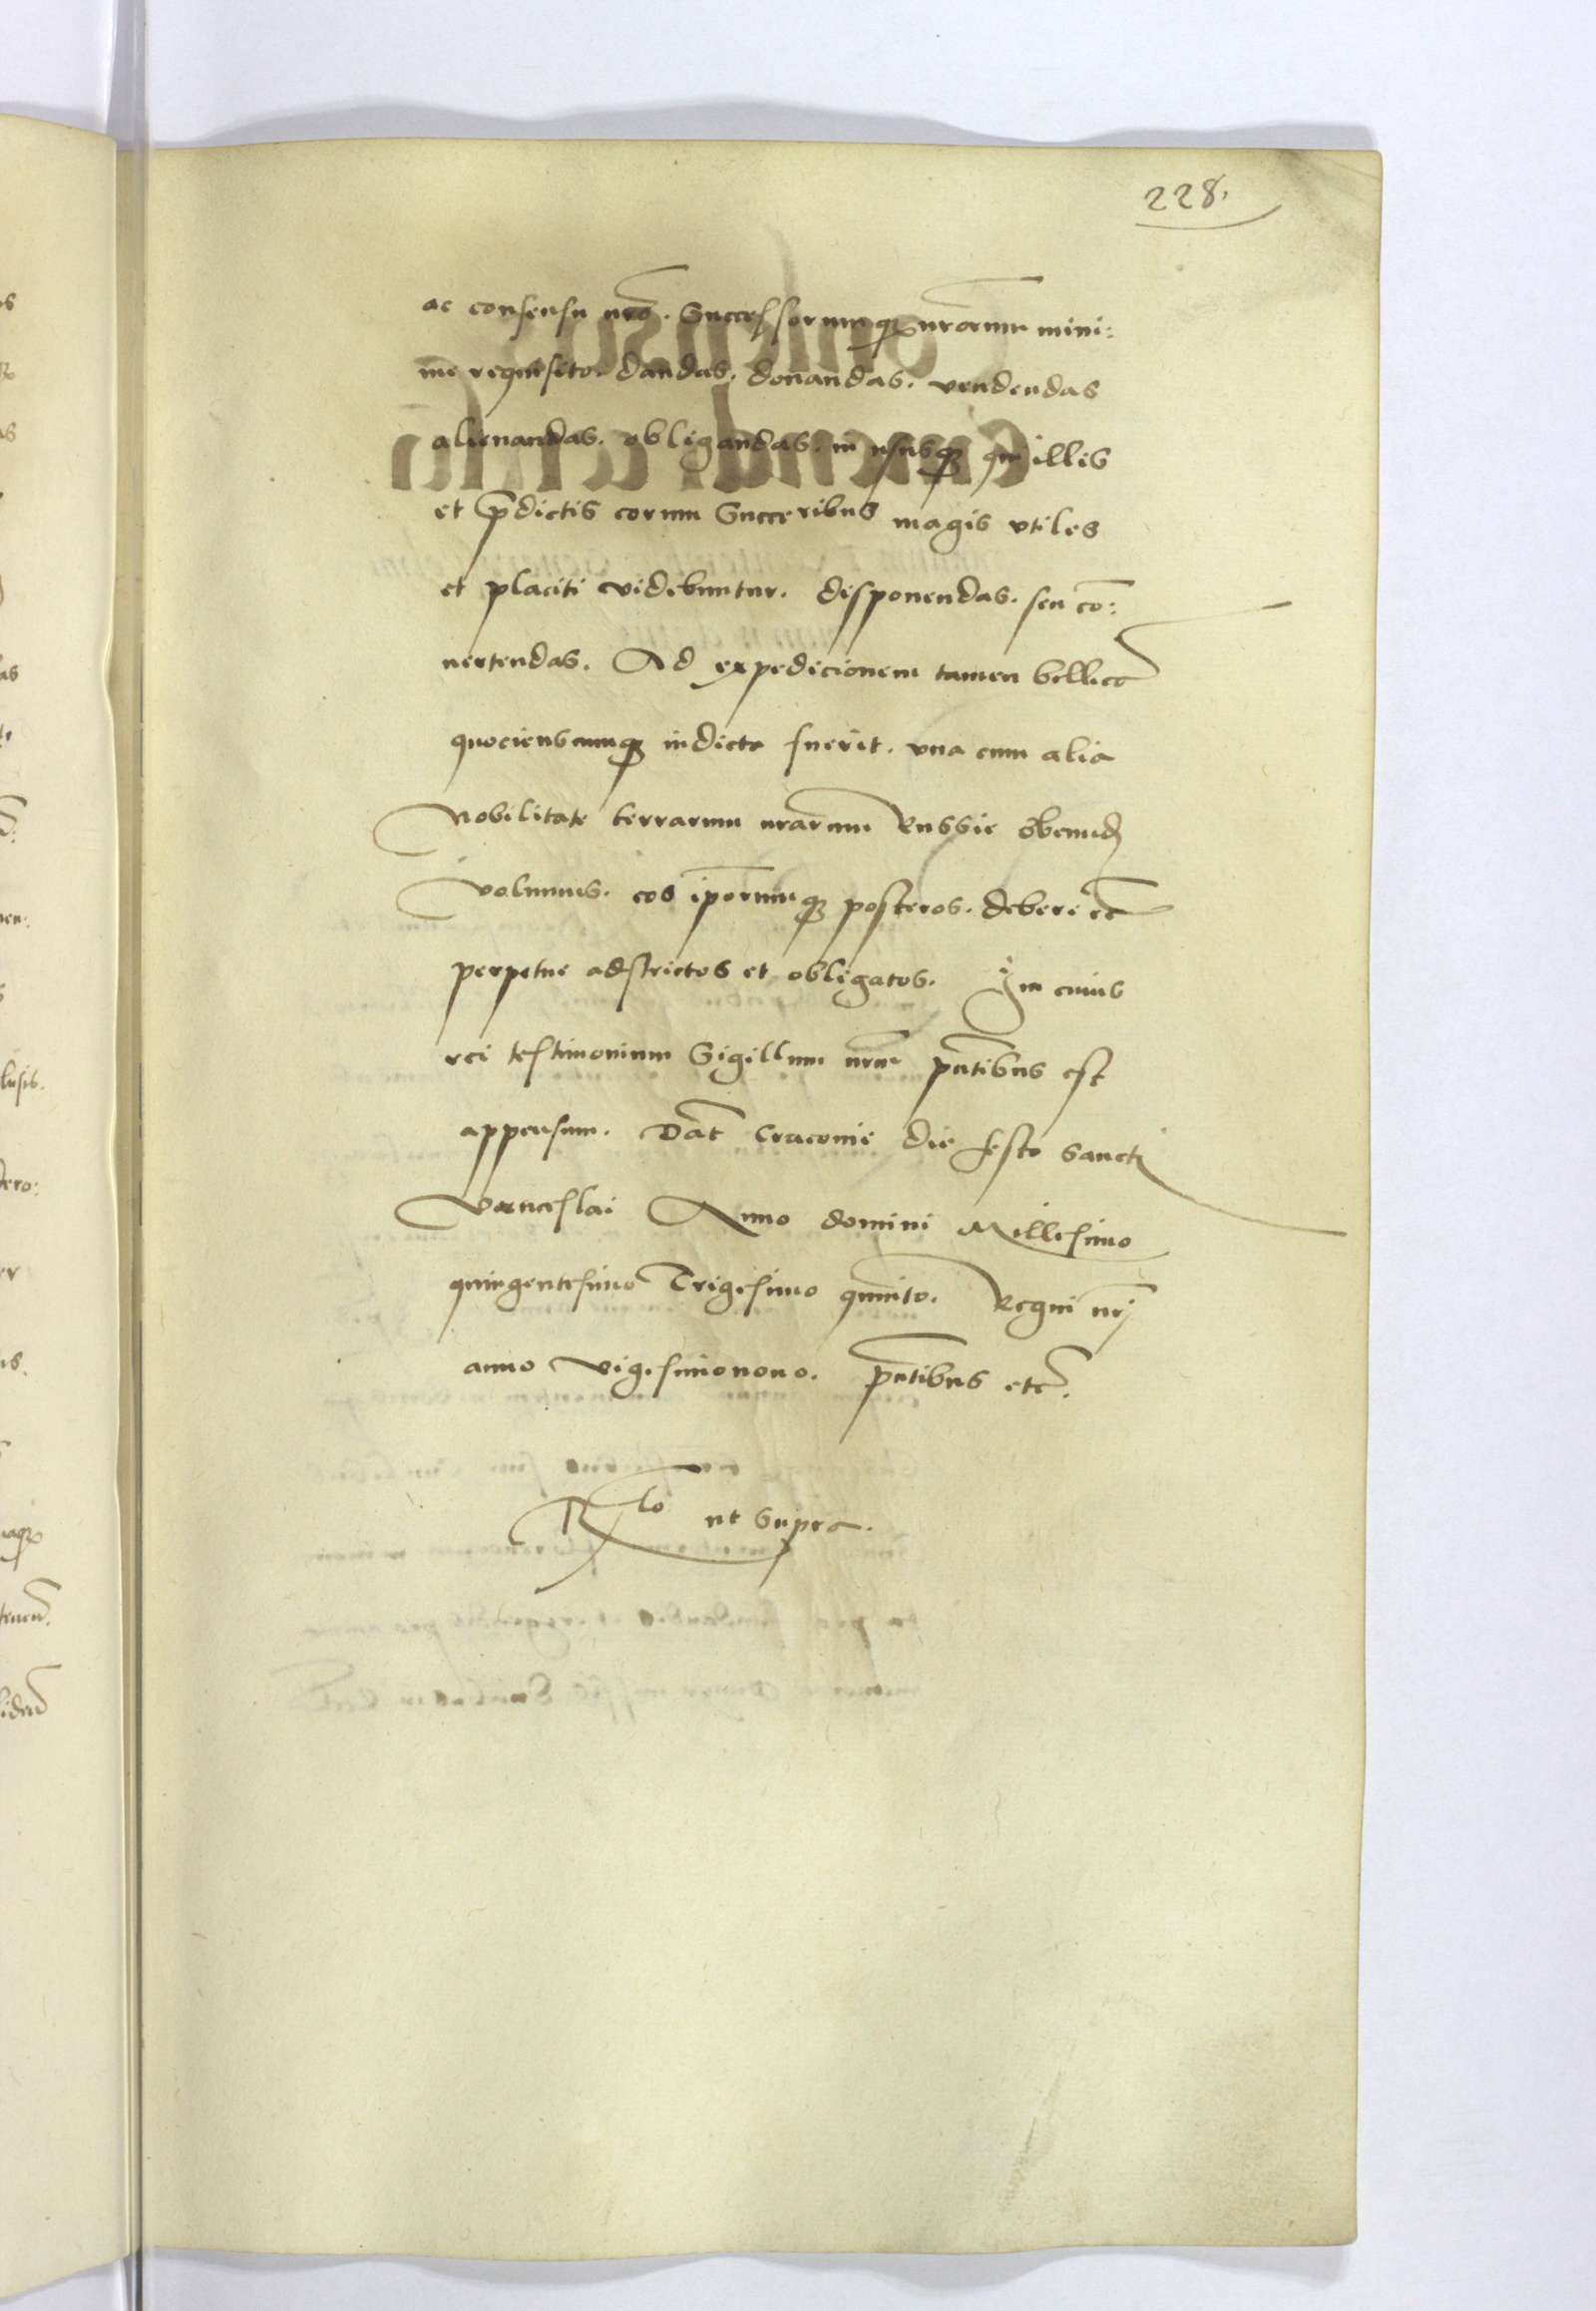 228.
ac consensu nr̃o. Successorumqȝ nr̃orum mini:
me requisito. dandas. donandas. vendendas
alienandas. obligandas. in ususqȝ qui illis
et p̃dictis eorum Succeribus magis vtiles
et placiti videbuntur. disponendas. seu co̅:
uertendas. Ad expedicionem tamen bellica̅
quocienscumqȝ indicta fuerit. vna cum alia
Nobilitate terrarum nr̃arum Russie
volumus. eos ip̃orumqȝ posteros. debere et
perpetue adstrictos et obligatos. In cuius
rei testimonium Sigillum nr̃m pñtibus est
appensum. Dat̃ Cracouie die festo Sancti
Venceslai Anno domini Millesimo
quingentesimo Trigesimo quinto. Regni nr̃j
anno vigesimonono. Pñtibus etc̃.
Rlo ut supra.